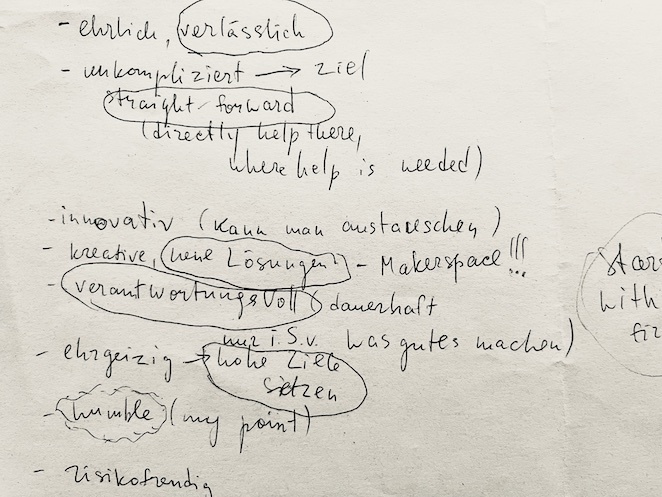 - ehrlich, verlässlich
- unkompliziert → ziel
straight forward
(directly help there,
where help is needed)
- innovativ (kann man austauschen)
- kreative, neue Lösungen - Makerspace!!!
- verantwortungsvoll (dauerhaft
nur i.S.v. was gutes machen)
- ehrgeizig → hohe Ziele
setzen
- humble (my point)
- risikofreudig
with